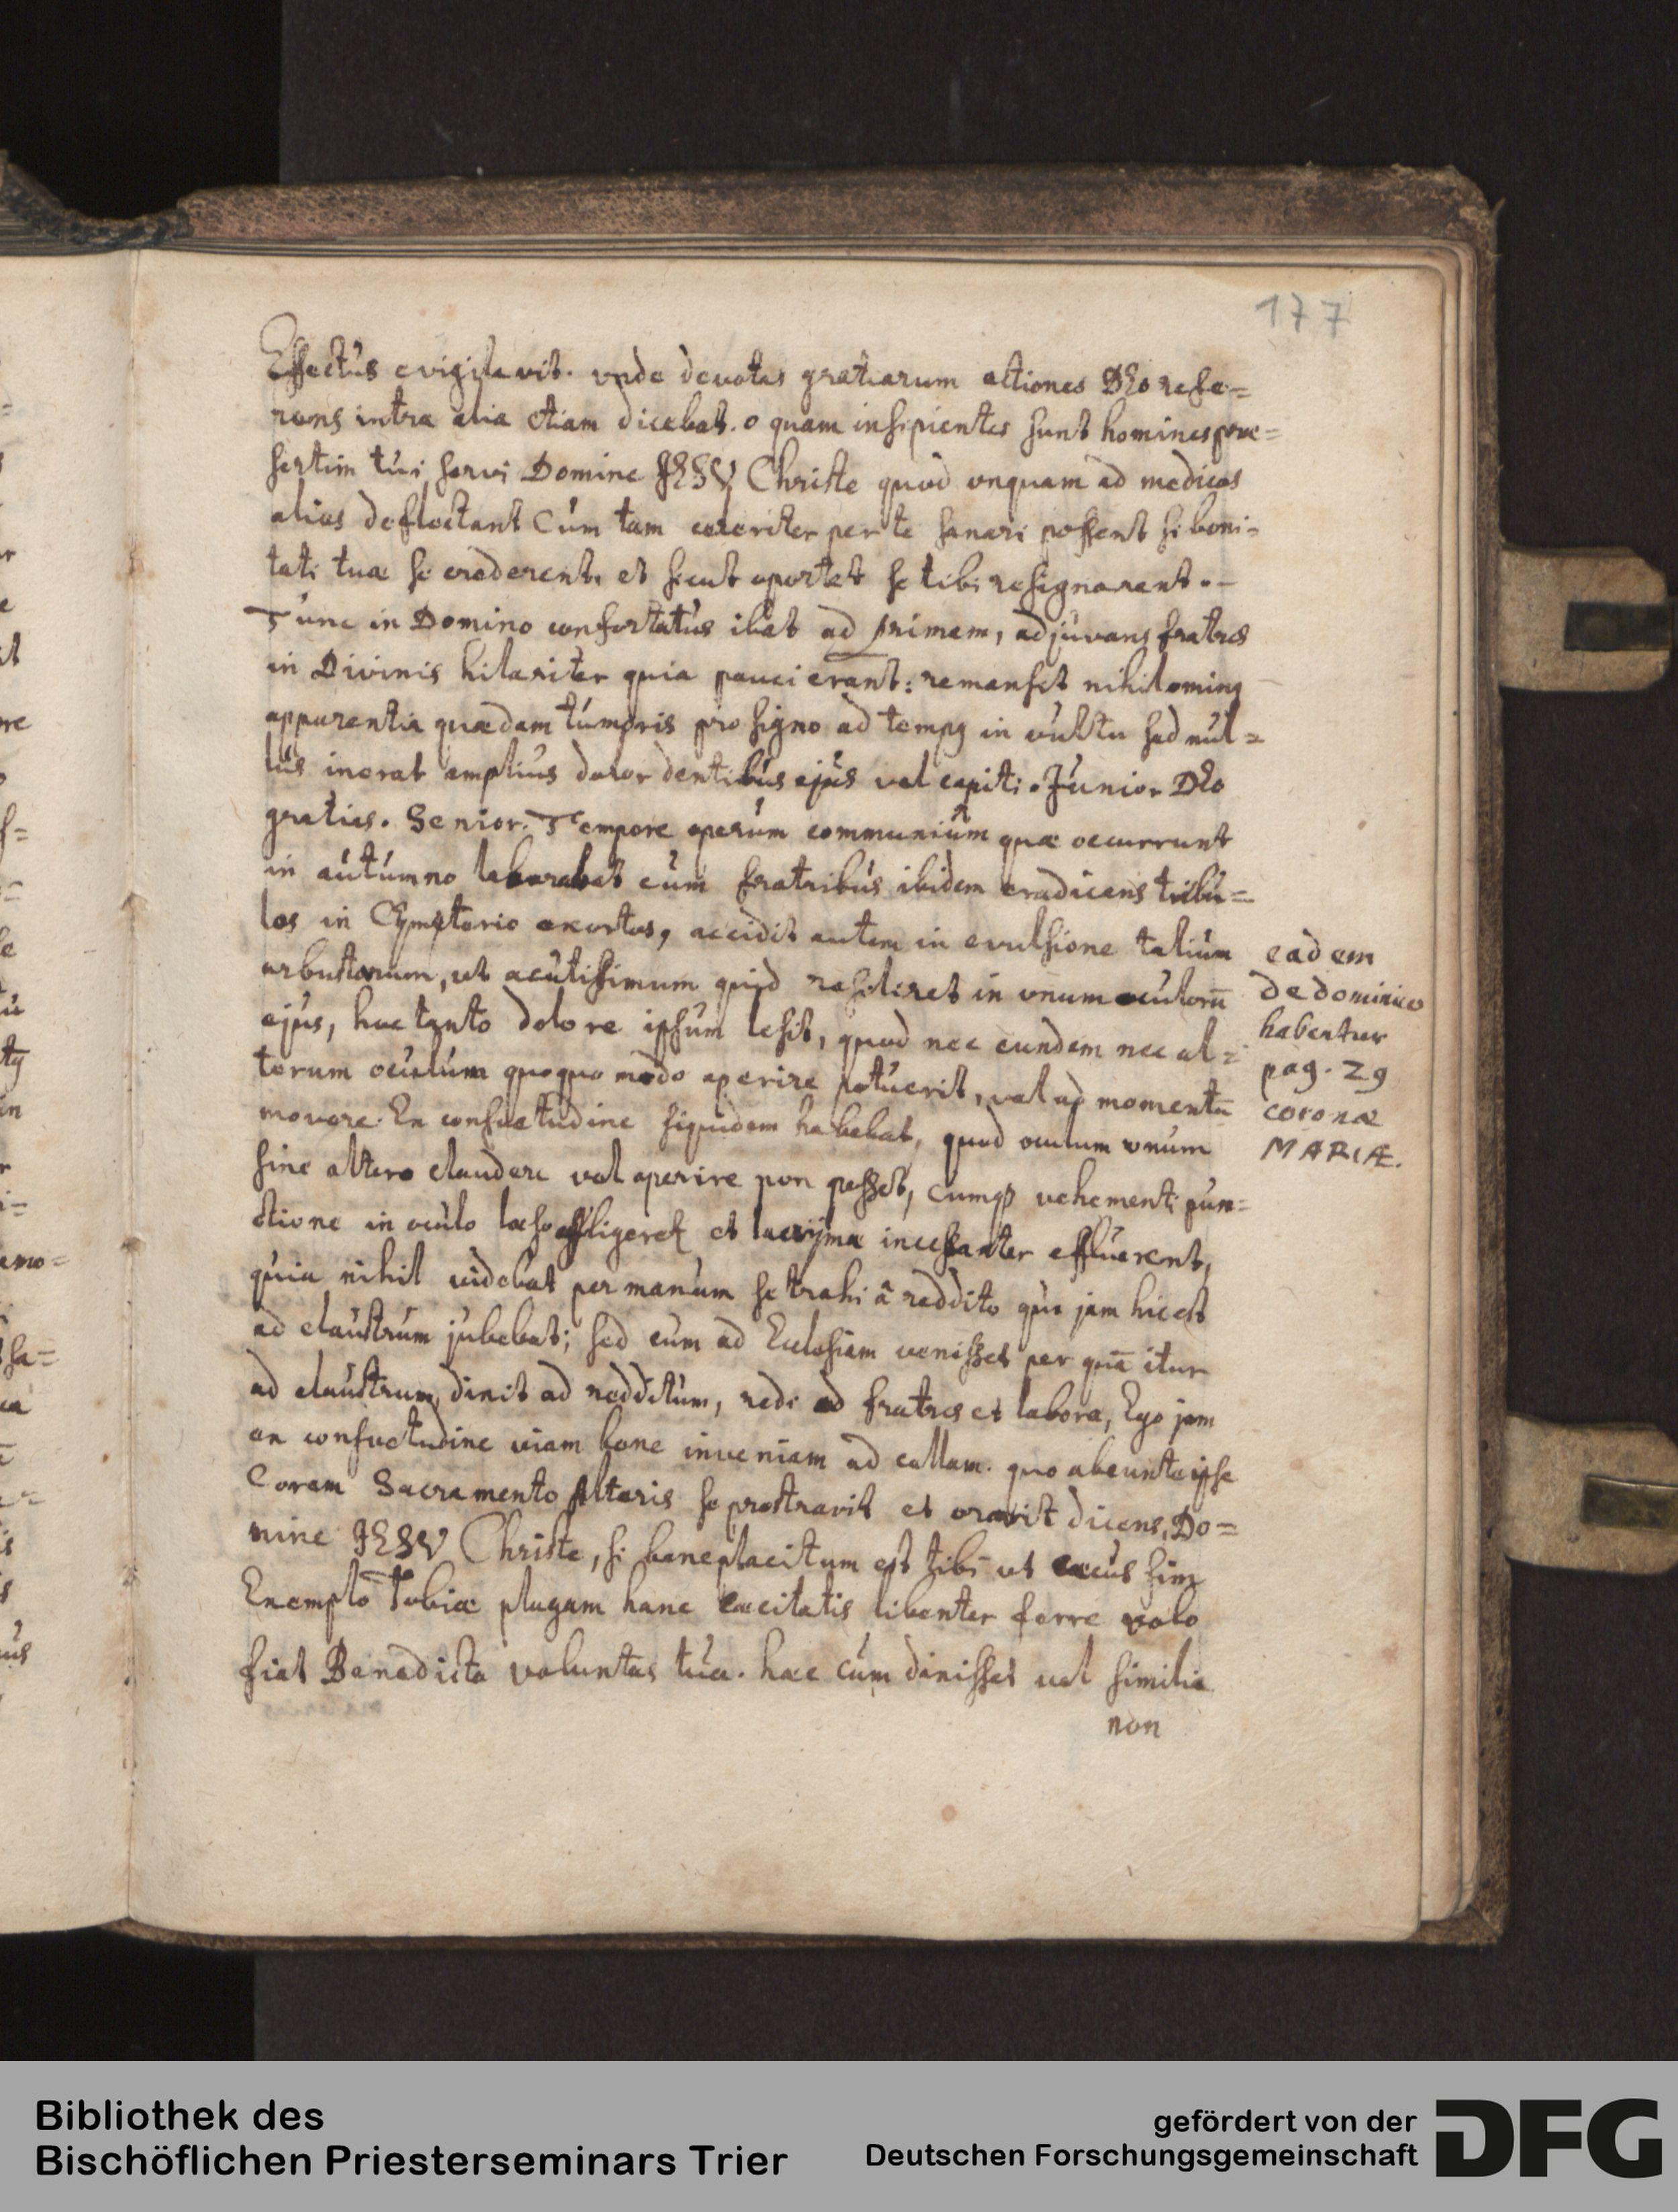 177
Effectus evigilavit. vnde devotas gratiarum actiones DEo refe=
rens intra alia etiam dicebat. o quam insipientes sunt homines prae=
sertim tui servi Domine JESV Christe quod vnquam ad medicos
alios deflectant Cùm tam celeriter per te sanari possent si boni=
tati tuae se crederent, et sicut oportet se tibi resignarent. -
Tunc in Domino confortatùs ibat ad primam, adjuvans fratres
in Divinis hilariter quia pauci erant: remansit nihilominꝰ
apparentia quaedam tùmoris pro signo ad tempꝰ in vùltu sed nùl=
lùs inerat ampliùs dolor dentibùs ejùs vel capiti. Jùnior. DEo
gratias. Senior. Tempore operùm communiùm quae occurrunt
in aùtùmno laborabat cùm fratribùs ibidem eradicans tribu=
los in Cÿmiterio exortos, accidit autem in evulsione taliùm
arbustorum, ùt acùtissimum quid resiliret in vnum oculorū
ejùs, hac tanto dolore ipsùm lesit, quod nec eundem nec al=
terum ocùlùm quoquo modo aperire potùerit, vel ad momentū
movere. En consuetudine siquidem habebat, quod oculum vnùm
sine altero claudere vel aperire non posset, cumqꝫ vehementi pun=
ctione in ocùlo laeso affligeret et lacrÿmae incessanter efflùerent,
qùia nihil videbat per manum se trahi â reddito qùi jam hic est
ad claùstrùm jùbebat; sed cùm ad Ecclesiam venisset per quā itur
ad claùstrum, dixit ad redditùm, redi ad fratres et labora, Ego jam
ex consuetùdine viam bene inveniam ad cellam. quo abeunte ipse
Coram Sacramento Altaris se prostravit et oravit dicens, Do=
mine JESV Christe, si beneplacitum est tibi ut caecus sim
Exemplo Tobiae plagam hanc caecitatis libenter ferre volo
fiat Benedicta voluntas tùa. haec cùm dixisset vel similia
non
eadem
de dominico
habentur
pag. 29
coronae
MARIÆ.
Bibliothek des
Bischöflichen Priesterseminars Trier
gefördert von der
Deutschen Forschungsgemeinschaft
DFG